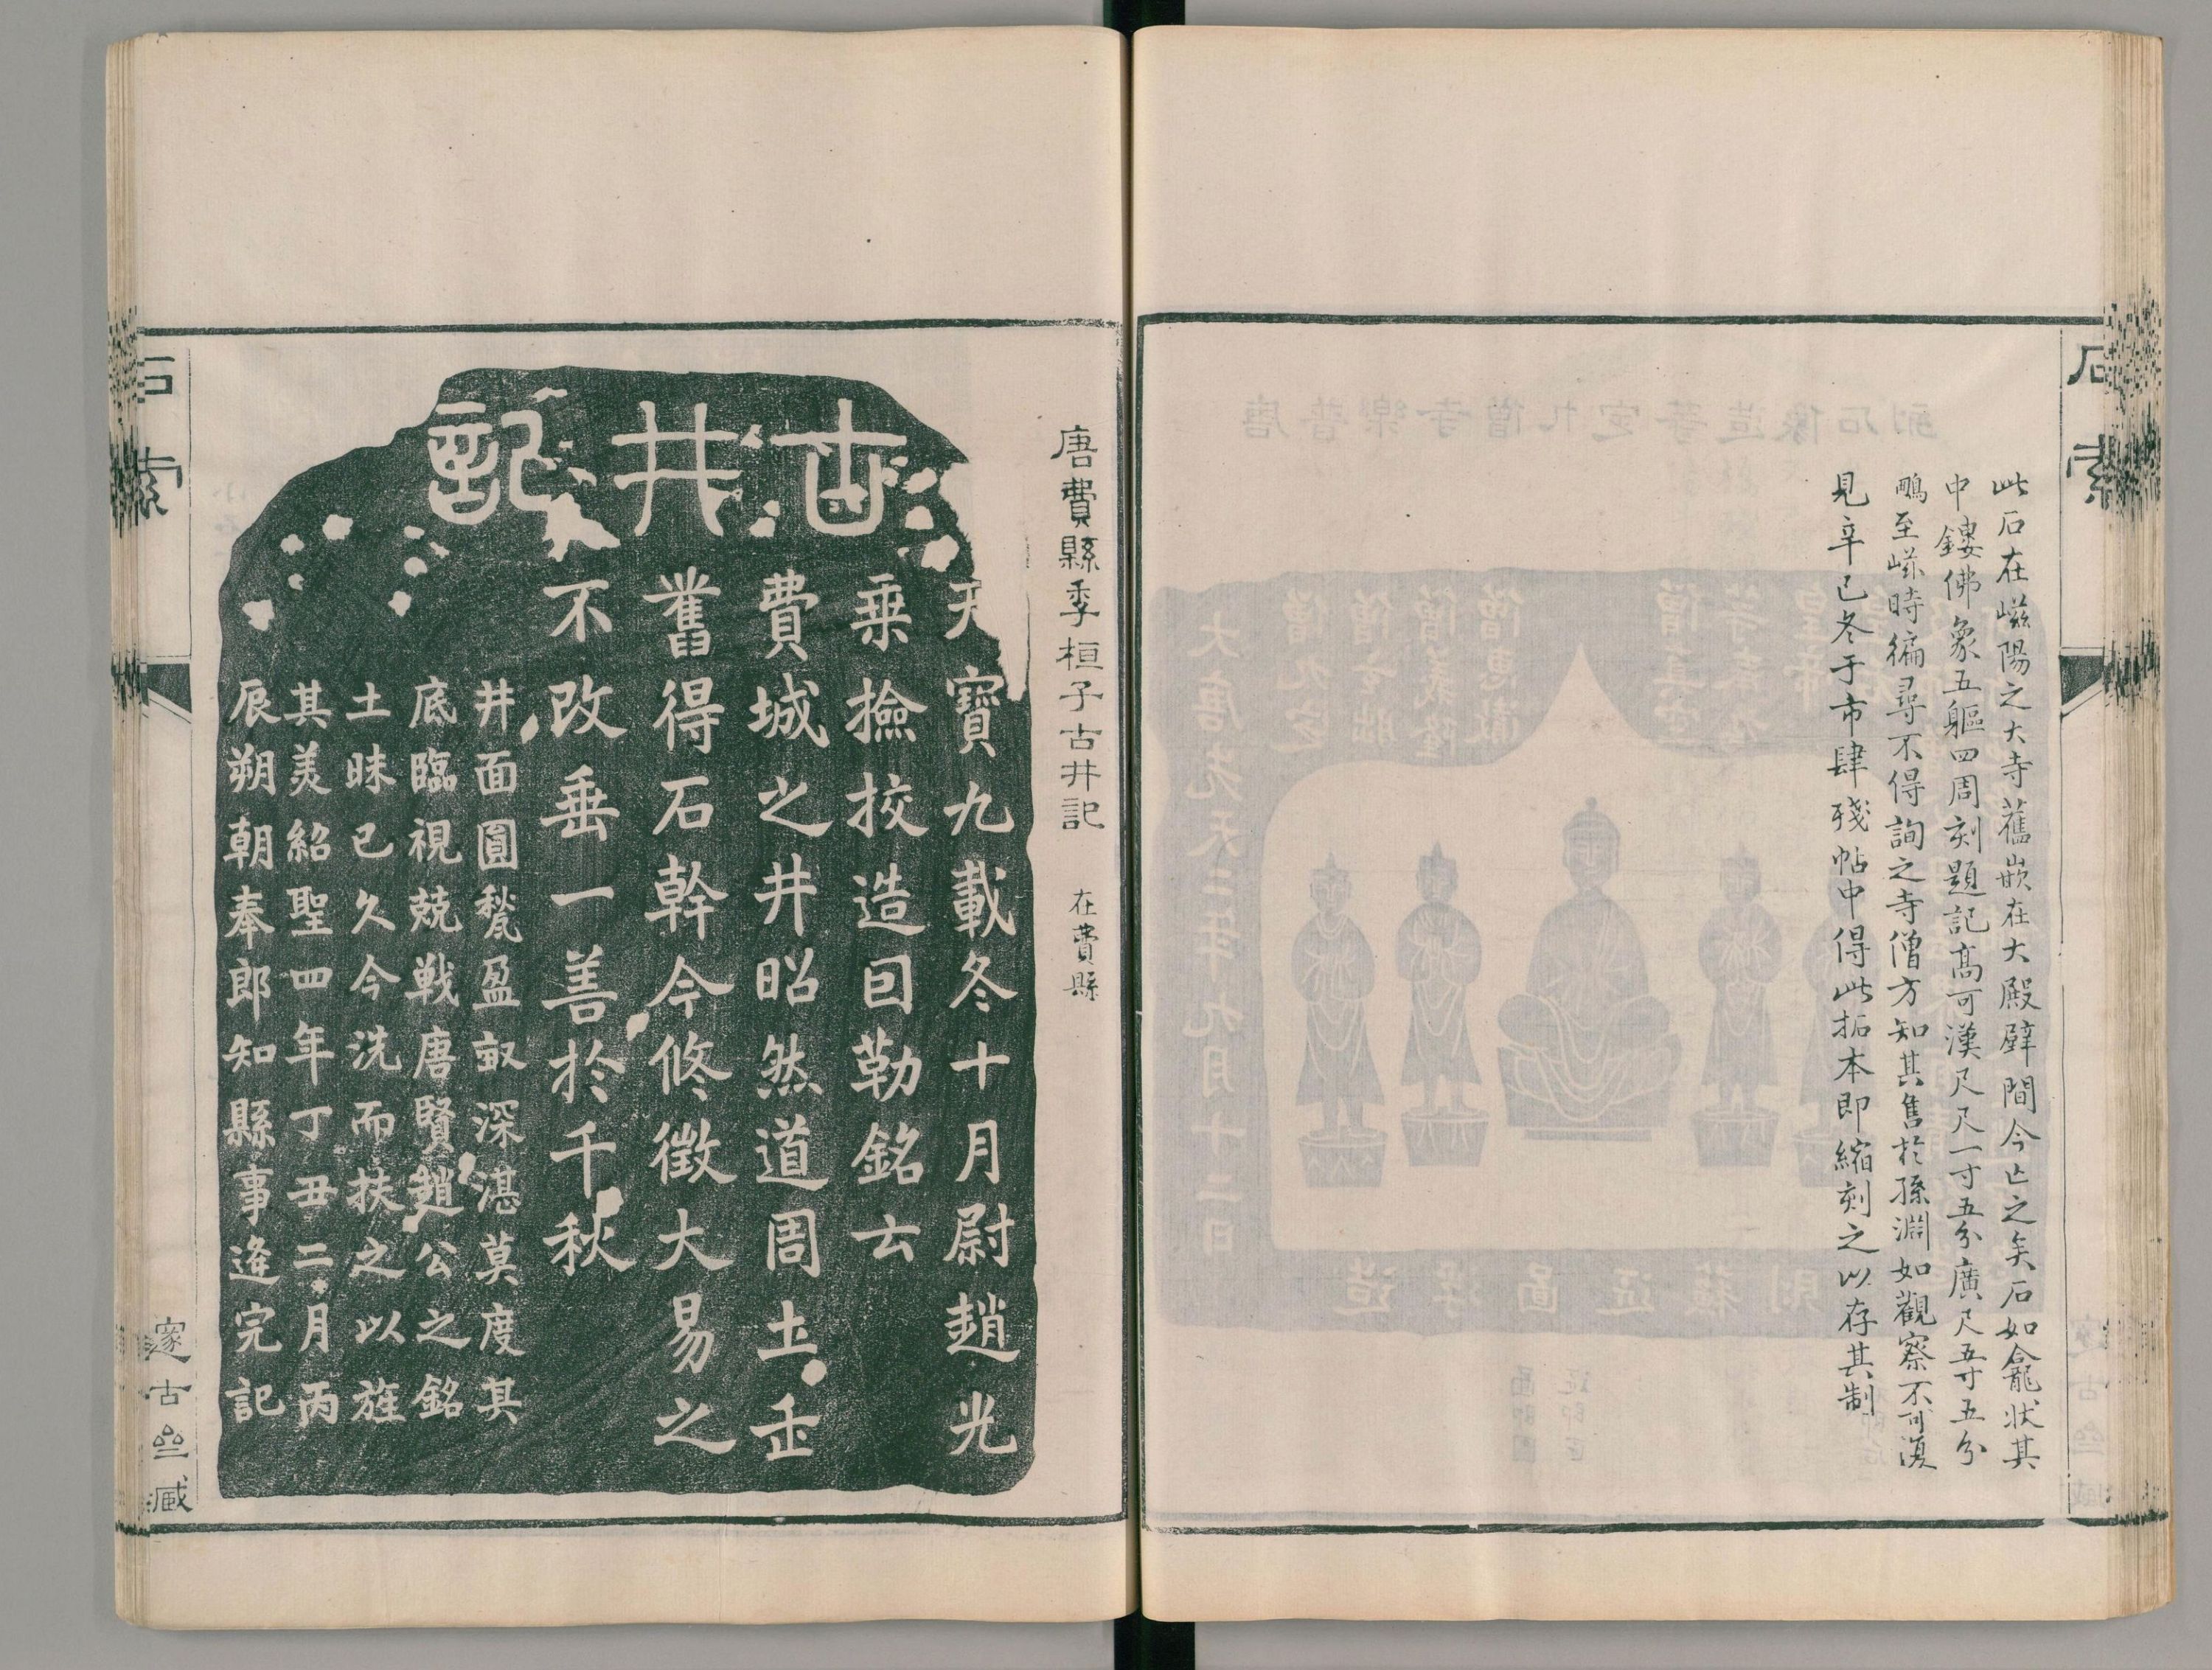 石索
此石在嵫陽之大寺舊嵌在大殿壁間今亡之矣石如龕狀其
中鏤佛象五軀四周刻題記高可漢尺尺一寸五分廣尺五寸五分
鵬至嵫時徧尋不得詢之寺僧方知其售於孫淵如觀察不可復
見辛巳冬于市肆殘帖中得此拓本即縮刻之以存其制
唐費縣季桓子古井記 在費縣
古井記
天寶九載冬十月尉趙光
乗撿挍造囙勒銘云
費城之井昭然道周土缶
舊得石幹今修徵大易之
不改垂一善於千秋
井面圓甃盈㕡深湛莫度其
底臨視兢戰唐賢趙公之銘
土昧已久今洗而扶之以旌
其美紹聖四年丁丑二月丙
辰朔朝奉郎知縣事逄完記
石索
邃古亝臧